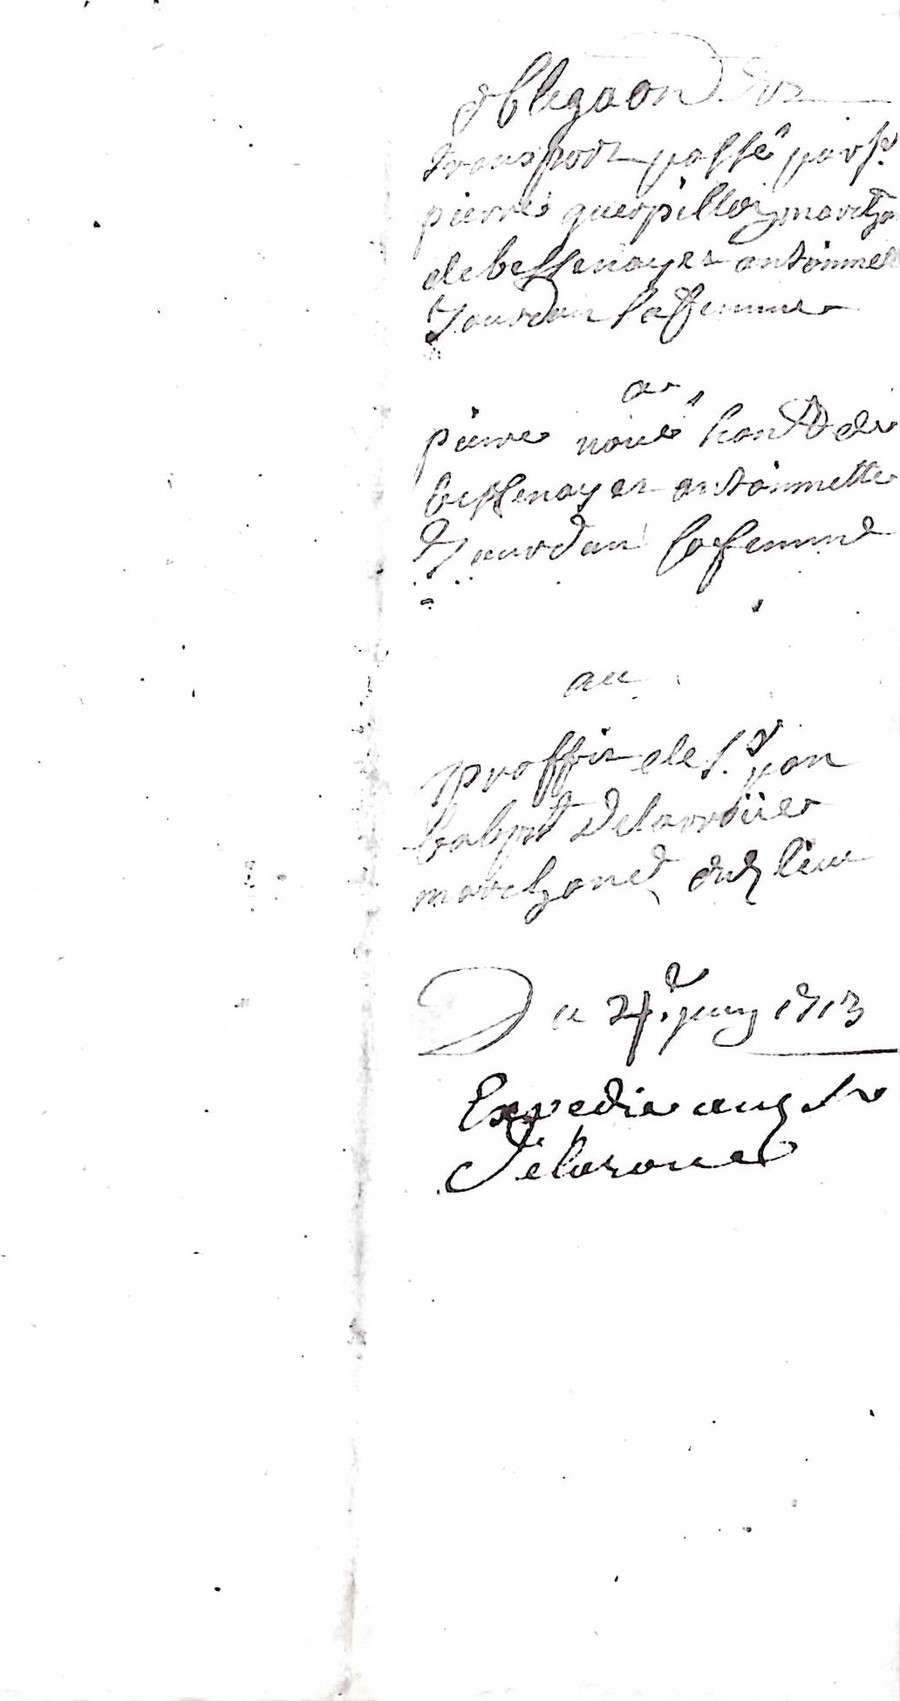 obligaon
transport passé par sr
pierre querpillon march
de bessenay et antoinnett
Jourdan sa femme
pierre hant de
bessenay et antoinnette
Jourdan sa femme
au
proffit de sr jean
babpt Delaroüe
marchand dud lieu
Du juin 1713
Expedié aud sr
Delaroue